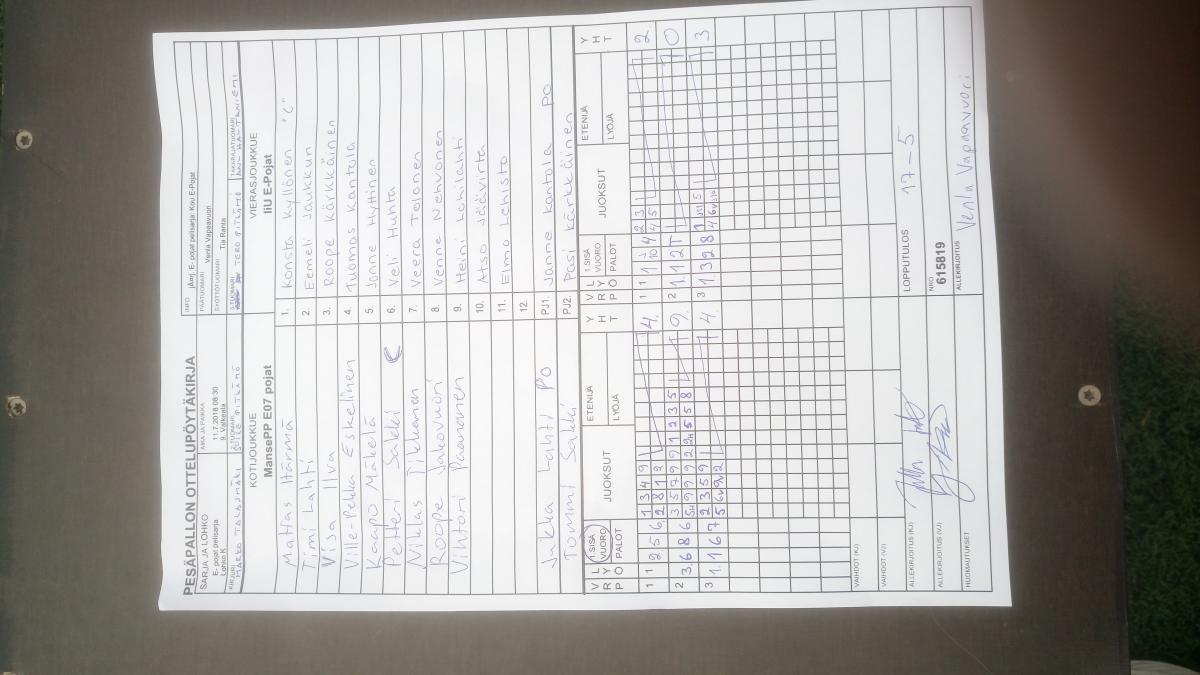 PESÄPALLON OTTELUPÖYTÄKIRJA
SARJA JA LOHKO
E- pojat pelisarja
Lohko K
AIKA JA PAIKKA
11.7.2018 08:30
9. Valkeala
INFO jÄnj. E- pojat pelisarja Kou E-Pojat
PÄÄTUOMARI Venla Vapaavuori
SYÖTTÖTUOMARI Tia Ranta
KIRJURI
MARKO TALASMÄKI
2-TUOMARI
3-TUOMARI
TERO PITKÄMÖ
TAKARAJATUOMARI
KOTIJOUKKUE
MansePP E07 pojat
VIERASJOUKKUE
IiU E-Pojat
Mattas Härmä 1. Konsta Kyllönen "C"
Timi Lahti 2. Eemeli Jaukkuri
Visa Ilva 3. Roope Kärkkäinen
Ville-Pekka Eskelinen 4. Tuomas Kantola
Kaapo Mäkelä 5. Jonne Hyttinen
Petteri Sakki C 6. Veli Huhta
Niklas Tikkanen 7. Veera Tolonen
Roope Jakovuori 8. Venne Nehvonen
Vihtori Paananen 9. Heini Lohilahti
10. Atso Jäävirta
11. Elmo Lehisto
12.
Jukka Lahti PO PJ1. Janne Kantola PO
Tommi Sakki PJ2. Pasi Kärkkäinen
V R P L Y Ö 1.SISÄ VUORO PALOT JUOKSUT ETENIJÄ LYÖJÄ Y H T V R P L Y Ö 1.SISÄ VUORO PALOT JUOKSUT ETENIJÄ LYÖJÄ Y H T
1 1 2 5 6 1 3 4 9 4. 1 1 1 4 2 3 2
2 8 1 2 4 5
2 3. 6 8 6 3 5 7 9 9 1 2 3 5 9. 2 1 1 2 T 0
3 1. 1 6 7 2 3 5 9 4 3 1. 3 2 8 3
VAIHDOT (KJ)
VAIHDOT (VJ)
ALLEKIRJOITUS (KJ)
LOPPUTULOS 17-5
ALLEKIRJOITUS (VJ)
NRO
615819
HUOMAUTUKSET
ALLEKIRJOITUS
Venla Vapaavuori